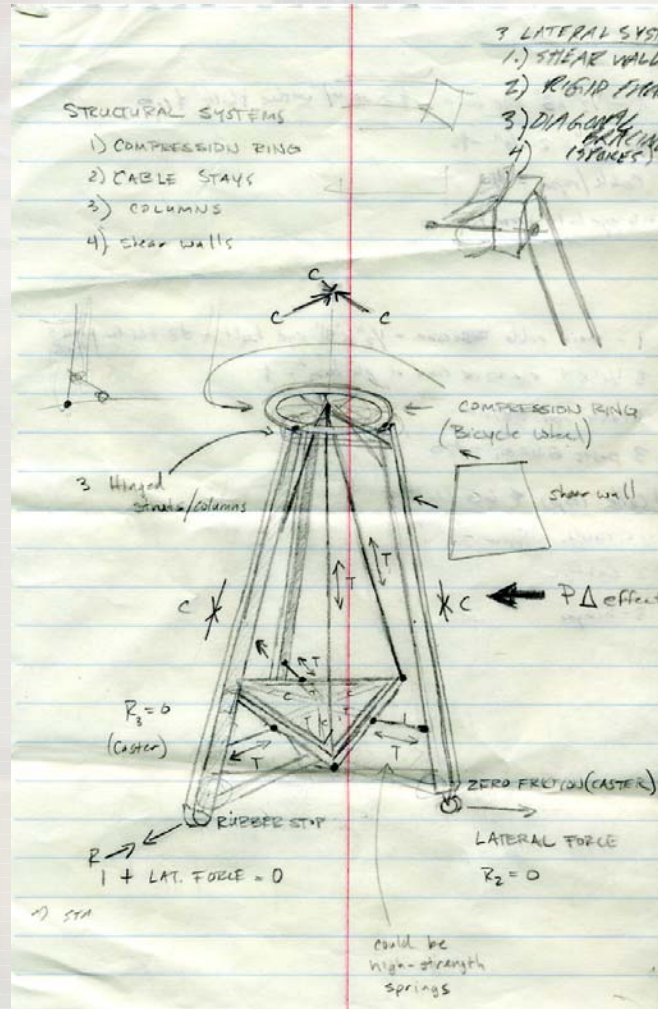 3 LATERAL SYST
1.) SHEAR WALL
2) RIGID FRA
3) DIAGONAL
BRACING
4) (SPOKES)
STRUCTURAL SYSTEMS
1) COMPRESSION RING
2) CABLE STAYS
3) COLUMNS
4) shear walls
C
C
C
COMPRESSION RING
(Bicycle wheel)
3 Hinged
struts/columns
shear wall
T
T
C
C
P Δ effect
T
C
C
T
C
T
R3 = 0
(Caster)
T
T
ZERO FRICTION (CASTER)
RUBBER STOP
LATERAL FORCE
R
1 + LAT. FORCE = 0
R2 = 0
could be
high-strength
springs